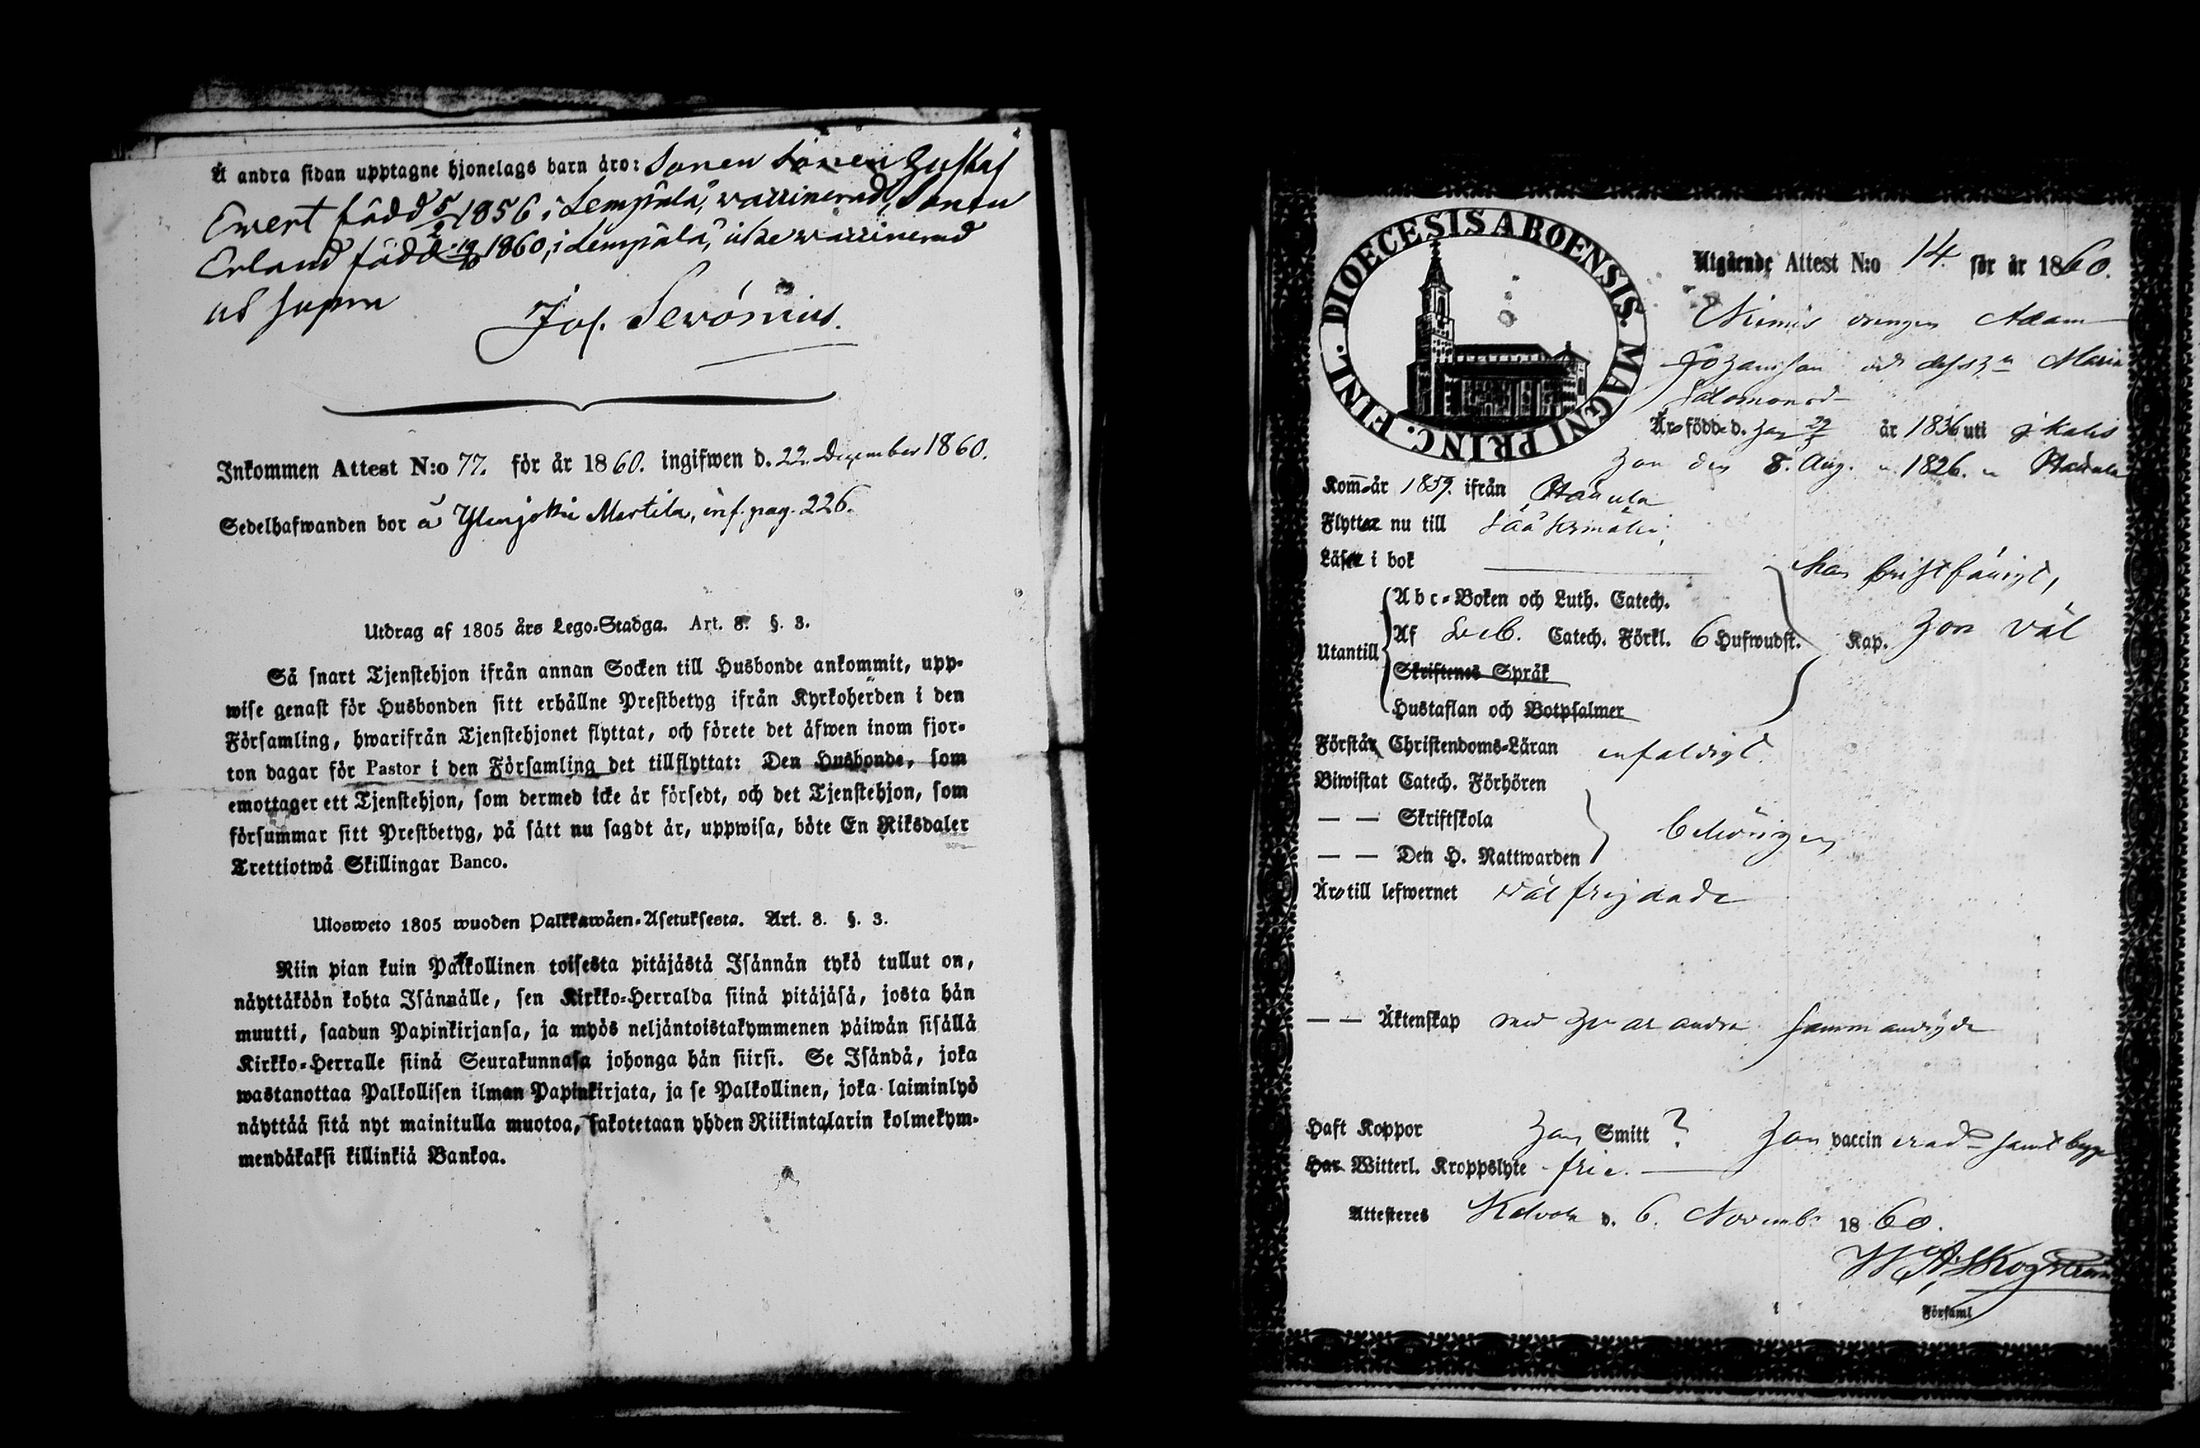 Å andra sidan upptagne hjonelags barn äro: Sonen Sonen Gustaf
Evert född 5/2 1856 i Lempälä, vaccinerad, Sonen
Erland född 19/10 1860, i Lempälä, icke vaccinerad
ut supra
Jos. Serónius.
Inkommen Attest N:o 77. för år 1860. ingifwen d. 22. December 1860.
Sedelhafwanden bor å Ylenjoki Mertila, inf. pag. 226.
Utdrag af 1805 års Lego-Stadga. Art. 8. §. 3.
Så snart Tjenstehjon ifrån annan Socken till Husbonde ankommit, upp-
wise genast för Husbonden sitt erhållne Prestbetyg ifrån Kyrkoherden i den
Församling, hwarifrån Tjenstehjonet flyttat, och förete det äfwen inom fjor-
ton dagar för Pastor i den Församling det tillflyttat: Den Husbonde, som
emottager ett Tjenstehjon, som dermed icke är försedt, och det Tjenstehjon, som
försummar sitt Prestbetyg, på sätt nu sagdt är, uppwisa, böte En Riksdaler
Trettiotwå Skillingar Banco.
Ulosweto 1805 wuoden Palkkawäen-Asetuksesta. Art. 8. §. 3.
Niin pian kuin Palkollinen toisesta pitäjästä Isännän tykö tullut on,
näyttäköön kohta Isännälle, sen Kirkko-Herralda siinä pitäjäsä, josta hän
muutti, saadun Papinkirjansa, ja myös neljäntoistakymmenen päiwän sisällä
Kirkko-Herralle siinä Seurakunnasa johonga hän siirsi. Se Isändä, joka
wastanottaa Palkollisen ilman Papinkirjata, ja se Palkollinen, joka laiminlyö
näyttää sitä nyt mainitulla muotoa, sakotetaan yhden Riikintalarin kolmekym-
mendäkaksi killinkiä Bankoa.
DIOECESIS ABOENSIS. MAGNI PRINC. FINL.
Utgående Attest N:o 14. för år 1860.
Niemis drengen Adam
Johansson och dess h:u Maria
Salomonsd
Äro född d. han 22 år 1836 uti
hon den 8. Aug. " 1826. "
Kom år 1859. ifrån
Flyttar nu till Sääksmäki,
Läser i bok
Abc-Boken och Luth. Catech.
Utantill Af Sveb. Catech. Förkl. 6 Hufwudst. Kap. hon väl
Skriftenes Språk
Hustaflan och Botpsalmer
Förstår Christendoms-Läran enfaldigt.
Biwistat Catech. Förhören
— — Skriftskola
— — Den H. Nattwarden
Äro till lefwernet väl frejdade
— — Äktenskap med hvarandra sammanvigde
Haft Koppor han Smitt ? hon vaccinerad samt bägge
Har Witterl. Kroppslyte frie.
Attesteres Kalvola d. 6. Novemb. 1860.
i Församl